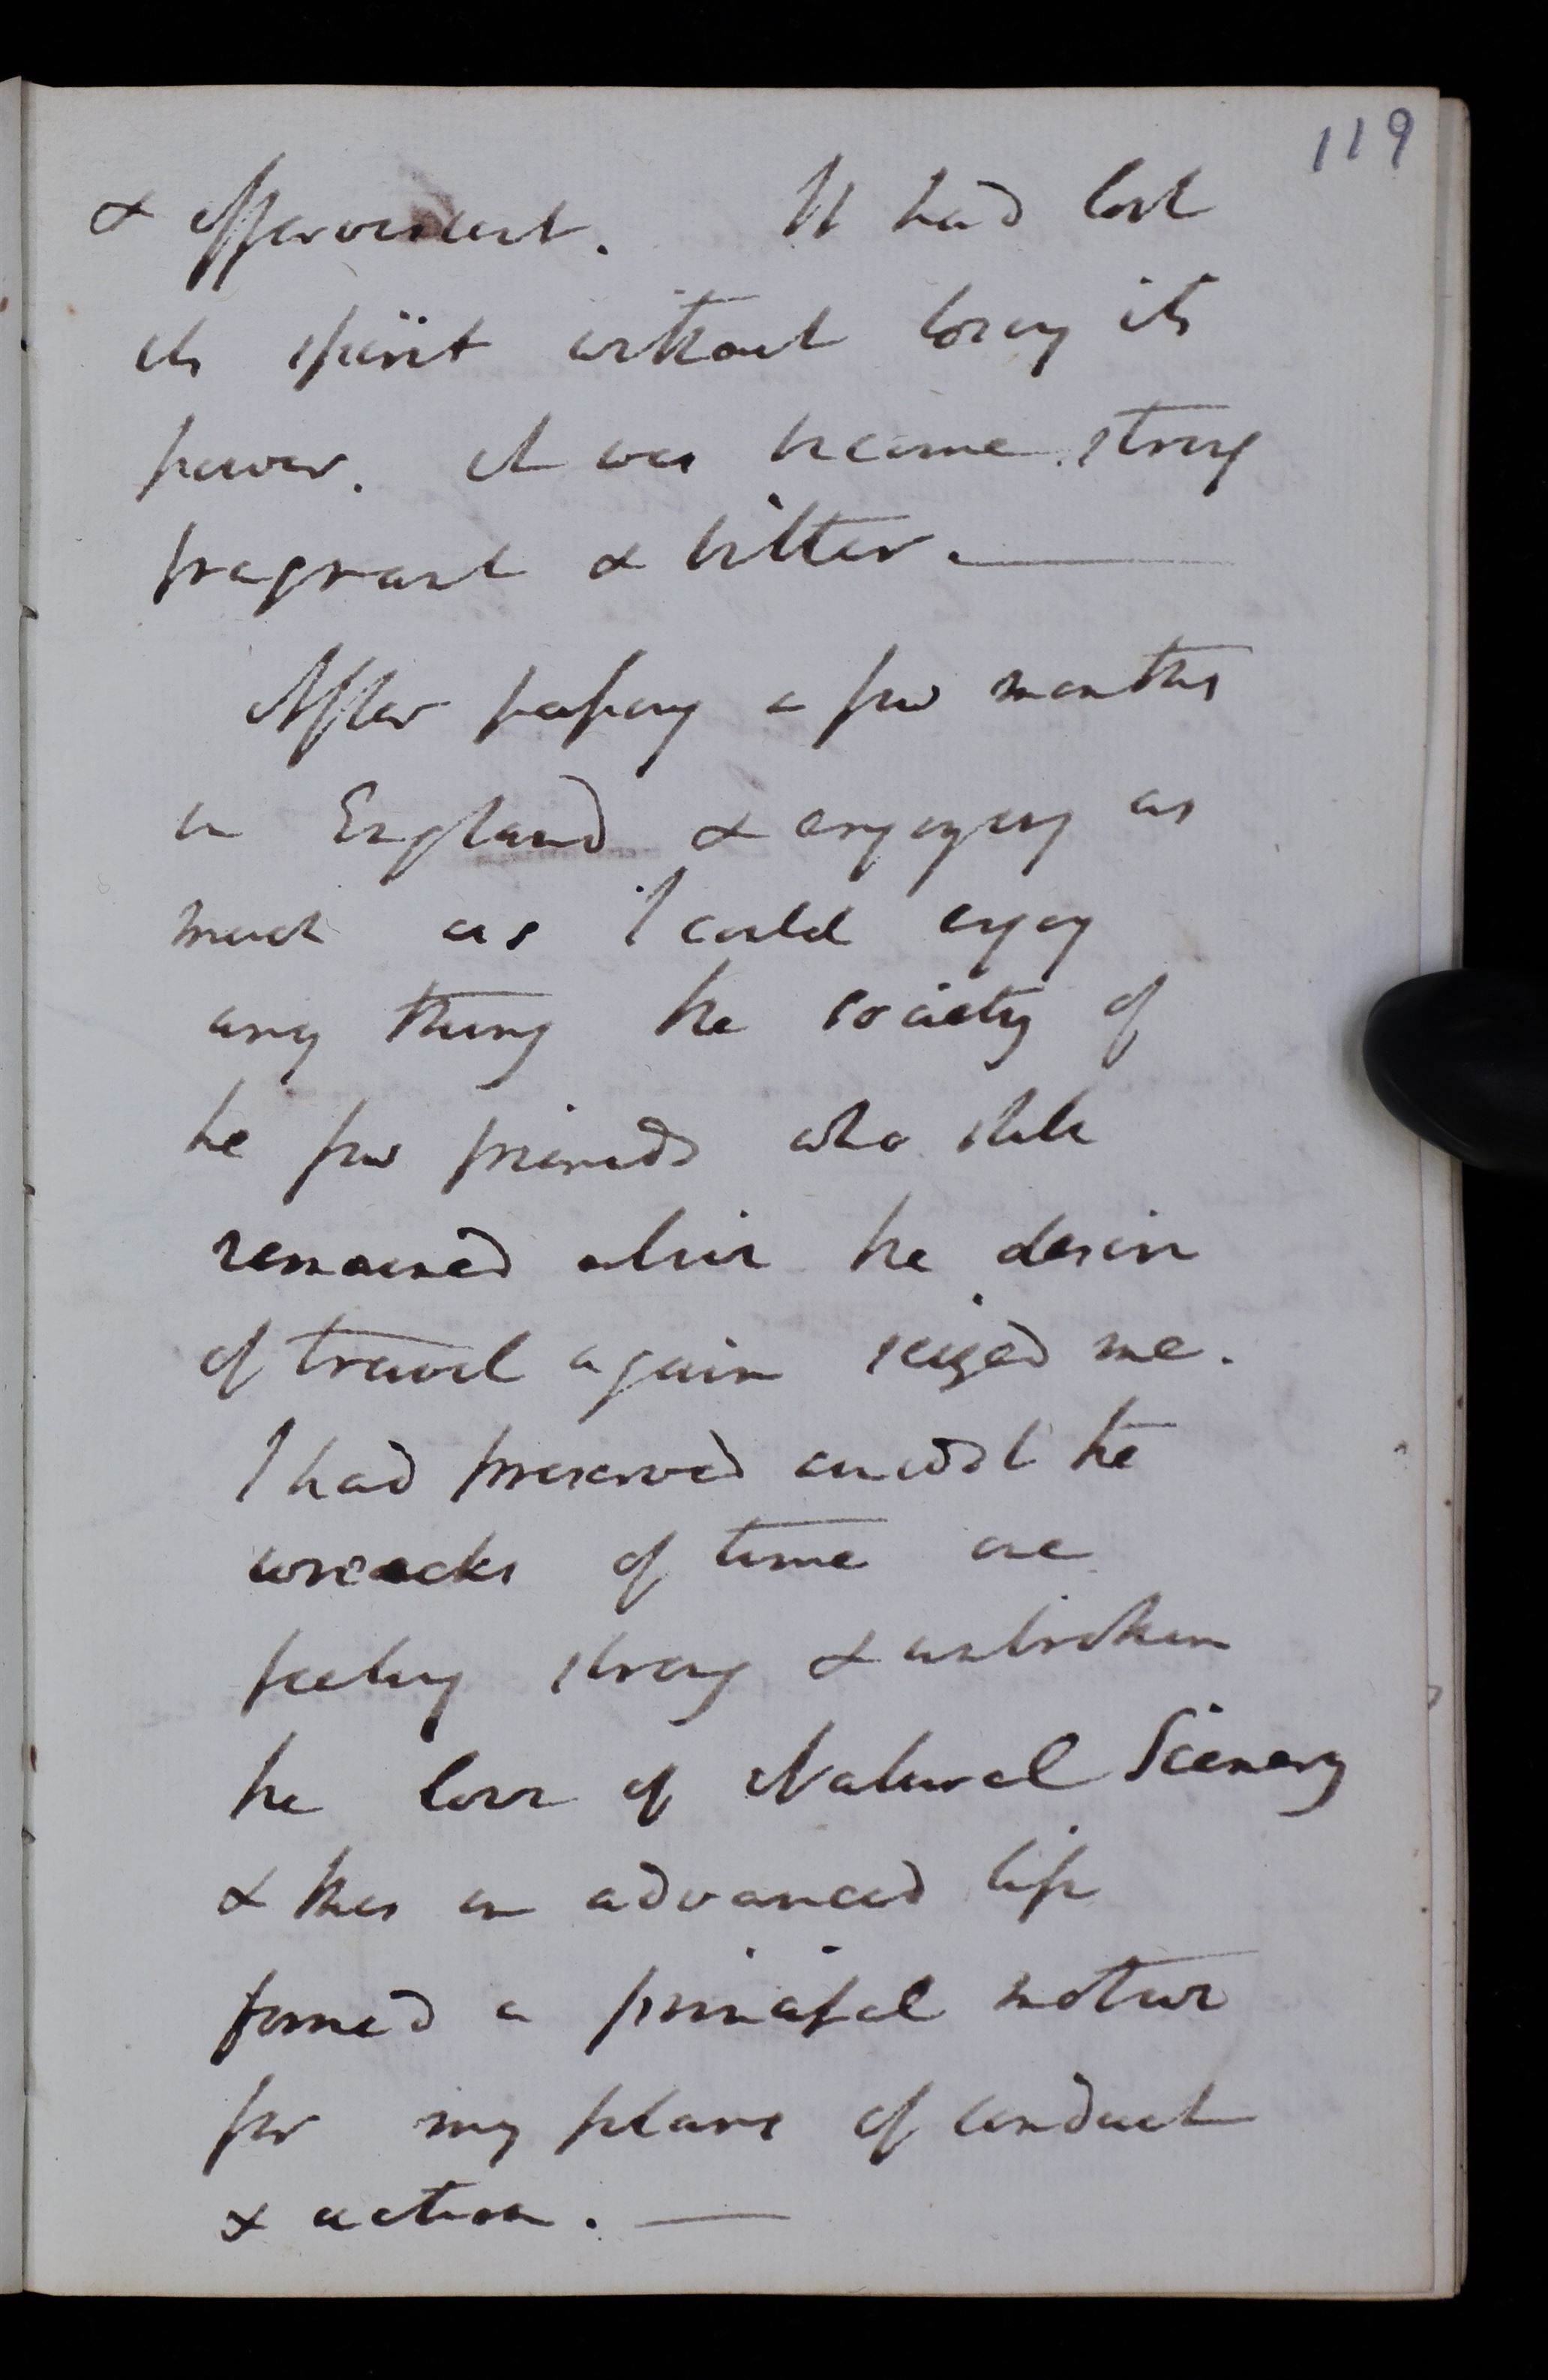 119
& effervescent. It had lost
its spirit without losing its
power. it was become strong
fragrant & bitter. —
After passing a few months
in England & enjoying as
much as I could enjoy
any thing the society of
the few friends who still
remained alive the desire
of travel again seized me.
I had preserved amidst the
wreacks of time one
feeling strong & unbroken
the love of Natural Scenery
& this in advanced life
formed a principal motive
for my plans of conduct
& action. —